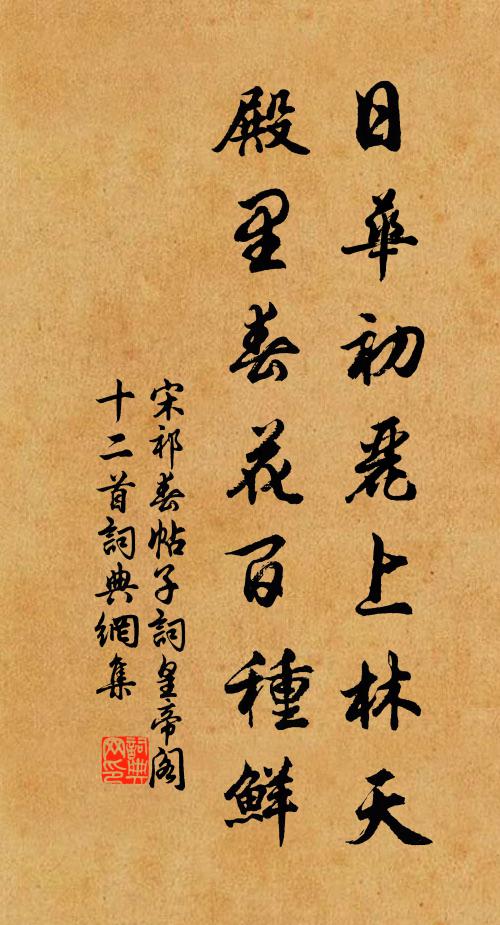 日華初麗上林天
殿里春花百種鮮
宋祁春帖子詞皇帝閣
十二首詞典網集
詞典
网印